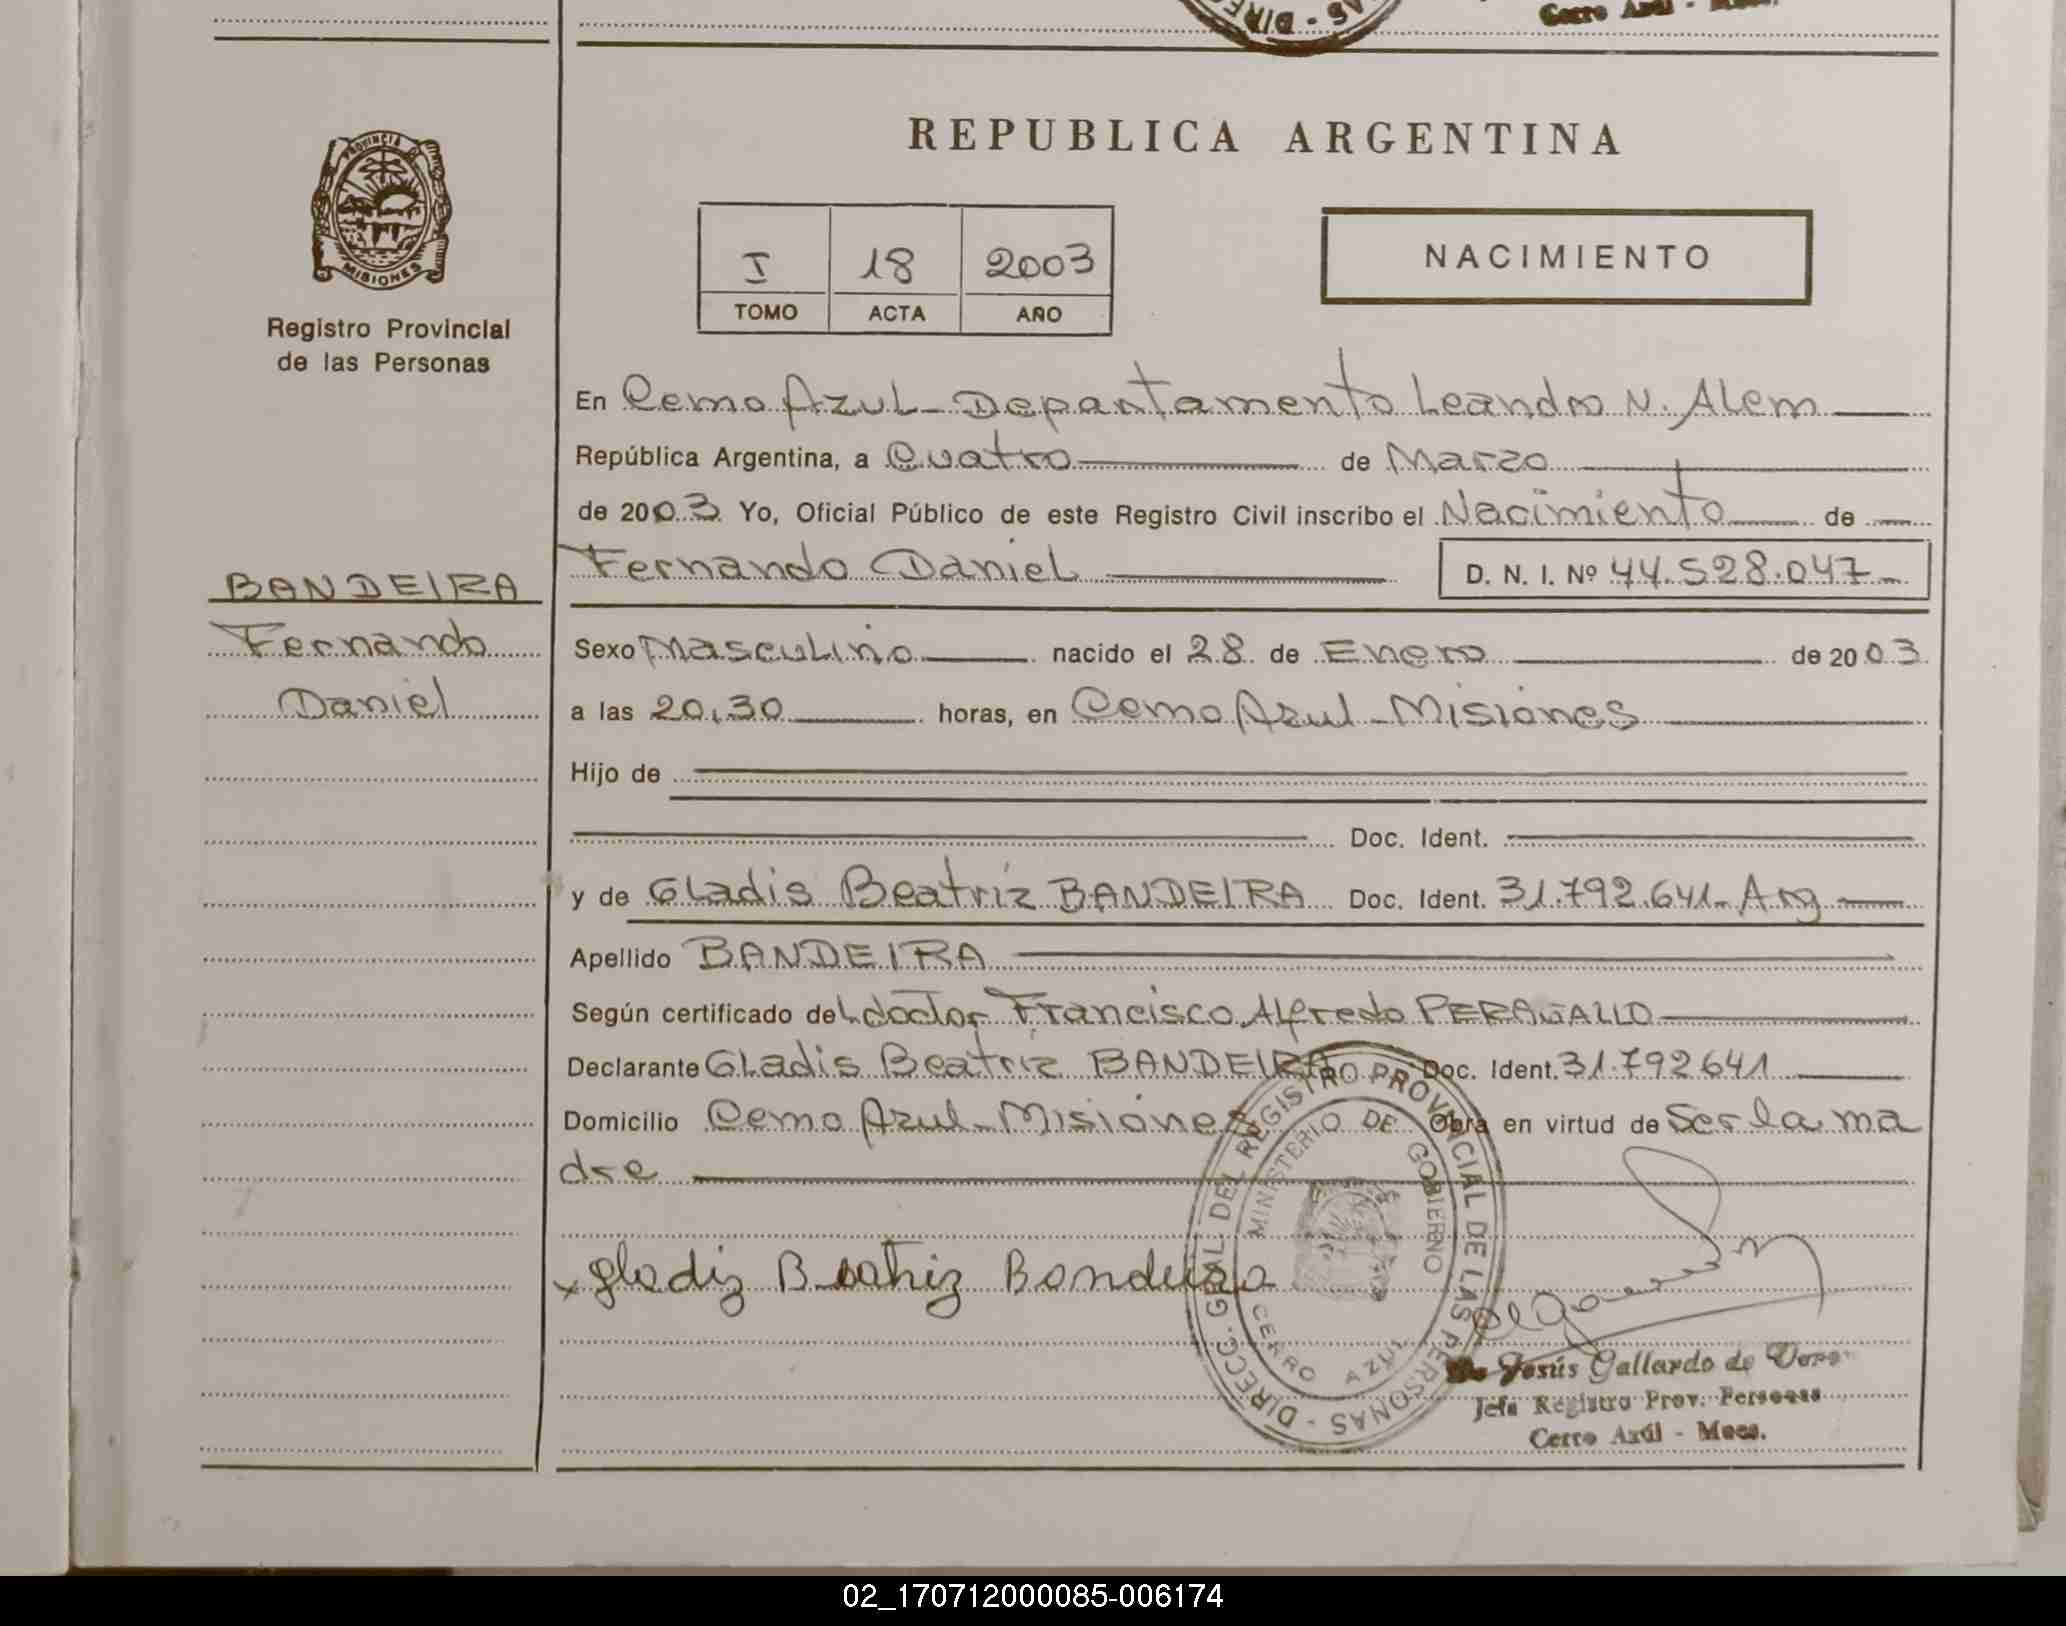 Cerro Azul - Mnes.
REPUBLICA ARGENTINA
PROVINCIA DE
MISIONES
Registro Provincial
de las Personas
I 18 2003
TOMO ACTA AÑO
NACIMIENTO
En Cerro Azul - Departamento Leandro N. Alem
República Argentina, a Cuatro de Marzo
de 2003 Yo, Oficial Público de este Registro Civil inscribo el Nacimiento de
Fernando Daniel D. N. I. Nº 44.528.047
BANDEIRA
Fernando
Daniel
Sexo Masculino nacido el 28 de Enero de 2003
a las 20,30 horas, en Cerro Azul - Misiones
Hijo de
Doc. Ident.
y de Gladis Beatriz BANDEIRA Doc. Ident. 31.792.641- Arg
Apellido BANDEIRA
Según certificado del doctor Francisco Alfredo
Declarante Gladis Beatriz BANDEIRA Doc. Ident. 31.792641
Domicilio Cerro Azul - Misiones Obra en virtud de Ser la ma
dre
x gladiz Beatriz Bandeira
DIRECC. GRAL DEL REGISTRO PROVINCIAL DE LAS PERSONAS -
MINISTERIO DE GOBIERNO
CERRO AZUL
Jesús Gallardo de
Jefa Registro Prov. Personas
Cerro Azúl - Mnes.
02_170712000085-006174